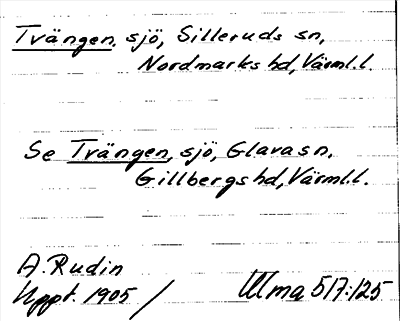 Tvängen, sjö, Silleruds sn,
Nordmarks hd, Värml.l.
Se Tvängen, sjö, Glava sn,
Gillbergs hd, Värml.l.
A. Rudin
Uppt. 1905 / Ulma 517:125